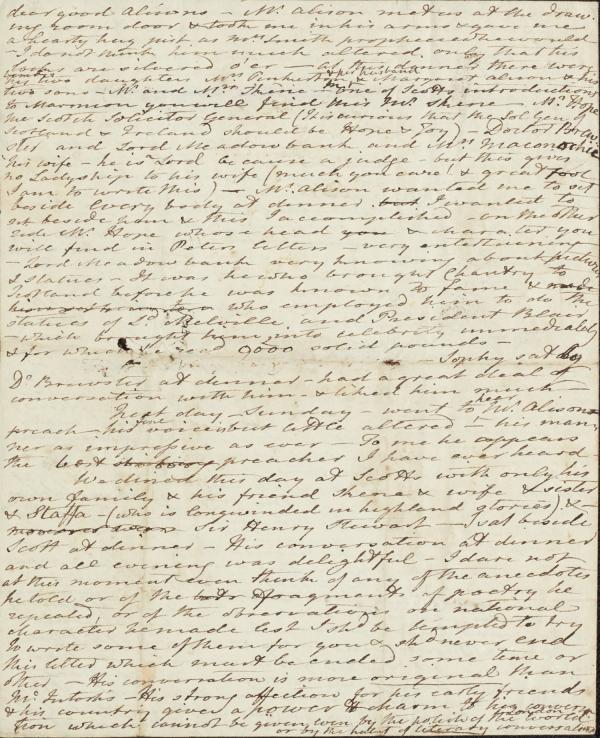 dear good Alisons – Mr. Alison met us at the draw-
ing room door & took me in his arms & gave me
a hearty kiss just as Mrs. Smith prophesied he would
– I do not think him much altered, only that his
locks are silvered o'er – at this dinner there were
his two daughters Mrs. Penherton & her husband & Margaret Alison & his
two sons – Mr. and Mrs. Skene – In one of Scotts introductions
to Marmion you will find this Mr. Skene – Mr. Hope
the Scotch Solicitor General (Tis curious that the Sol Gen of
Scotland & Ireland should be Hope & Joy) – Doctor Brew-
ster and Lord Meadowbank and Mrs. Maconochie
his wife – he is Lord because a judge – but this gives
no Ladyship to his wife (much you care! & great fool
I am to write this) – Mr. Alison wanted me to sit
beside every body at dinner but I wanted to
sit beside him & this I accomplished – on the other
side Mr. Hope whose head you & character you
will find in Peters letters – very entertaining
– Lord Meadowbank very knowing about pictures
& statues – It was he who brought Chantry to
Scotland before he was known to fame & made
who employed him to do the
statues of Ld. Melville and President Blair
– which brought him into celebrity immediately
& for which he read 9000 solid pounds –
– Sophy sat by
Dr. Brewster at dinner – had a great deal of
conversation with him & liked him much –
Next day – Sunday – went to hear Mr. Alison
preach – his fine voice but little altered – his man-
ner as impressive as ever – To me he appears
the best preacher I have ever heard
We dined this day at Scotts with only his
own family & his friend Skene & wife & sister
& Staffa – (who is longwinded in highland glories) & –
Sir Henry Stewart – I sat beside
Scott at dinner – His conversation at dinner
and all evening was delightful – I dare not
at this moment even think of any of the anecdotes
he told or of the fragments of poetry he
repeated, or of the observations on national
character he made lest I shd. be tempted to try
to write some of them for you & shd. never end
this letter which must be ended some time or
other – His conversation is more original than
McIntosh's – His strong affection for his early friends
& his country gives a power & charm to his conver-
tion which cannot be given even by the polish of the London world
or by the habit of literary conversation